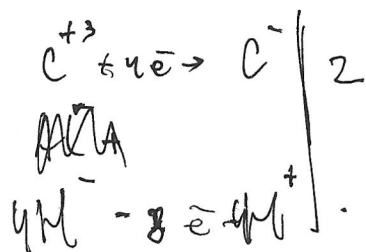 C⁺³ + 4ē → C⁻ | 2
4H⁻ - 8ē 4H⁺